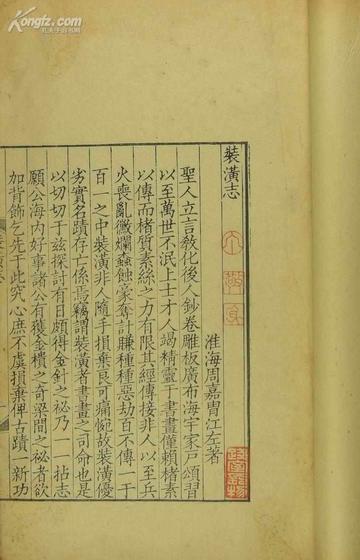 Kongfz.com
孔夫子旧书网
裝潢志
淮海周嘉胄江左著
聖人立言敎化後人鈔卷雕板廣布海宇家戶頌習
以至萬世不泯上士才人竭精靈于書畫僅賴楮素
以傳而楮質素絲之力有限其經傳接非人以至兵
火喪亂黴爛蟲蝕豪奪計賺種種惡劫百不傳一于
百一之中裝潢非人隨手損棄良可痛惋故裝潢優
劣實名蹟存亡係焉竊謂裝潢者書畫之司命也是
以切切于兹探討有日頗得金針之祕乃一一拈志
願公海内好事諸公有獲金櫝之奇梁間之祕者欲
加背飾乞先于此究心庶不虞損棄俾古蹟一新功